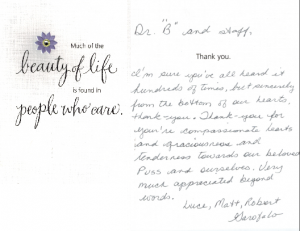 Much of the
beauty of life
is found in
people who care.
Dr. "B" and Staff,
Thank you.
I'm sure you've all heard it
hundreds of times, but sincerely
from the bottom of our hearts,
thank-you. Thank-you for
you're compassionate hearts
and graciousness and
tenderness towards our beloved
Puss and ourselves. Very
much appreciated beyond
words.
Luce, Matt, Robert
Garofalo